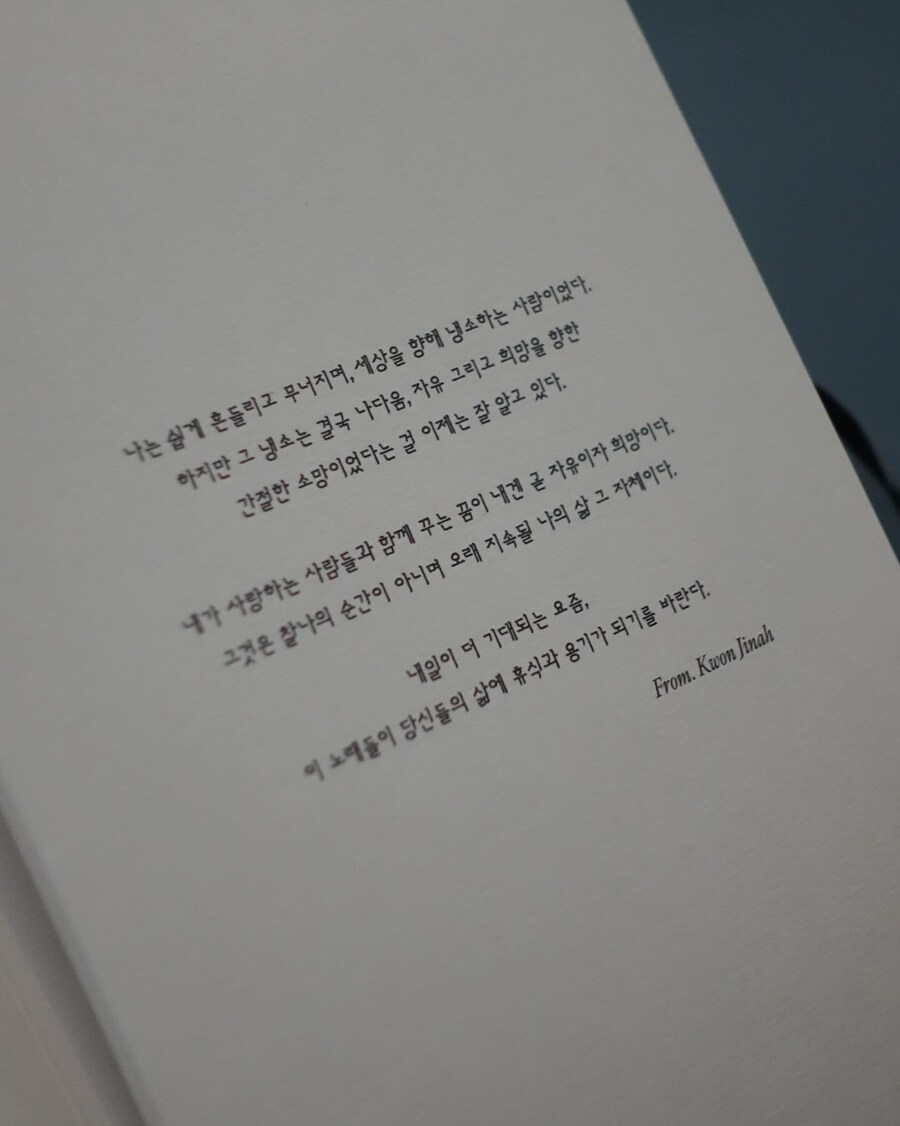 나는 쉽게 흔들리고 무너지며, 세상을 향해 냉소하는 사람이었다.
하지만 그 냉소는 결국 나다움, 자유 그리고 희망을 향한
간절한 소망이었다는 걸 이제는 잘 알고 있다.
내가 사랑하는 사람들과 함께 꾸는 꿈이 내겐 곧 자유이자 희망이다.
그것은 찰나의 순간이 아니며 오래 지속될 나의 삶 그 자체이다.
내일이 더 기대되는 요즘,
이 노래들이 당신들의 삶에 휴식과 용기가 되기를 바란다.
From. Kwon Jinah